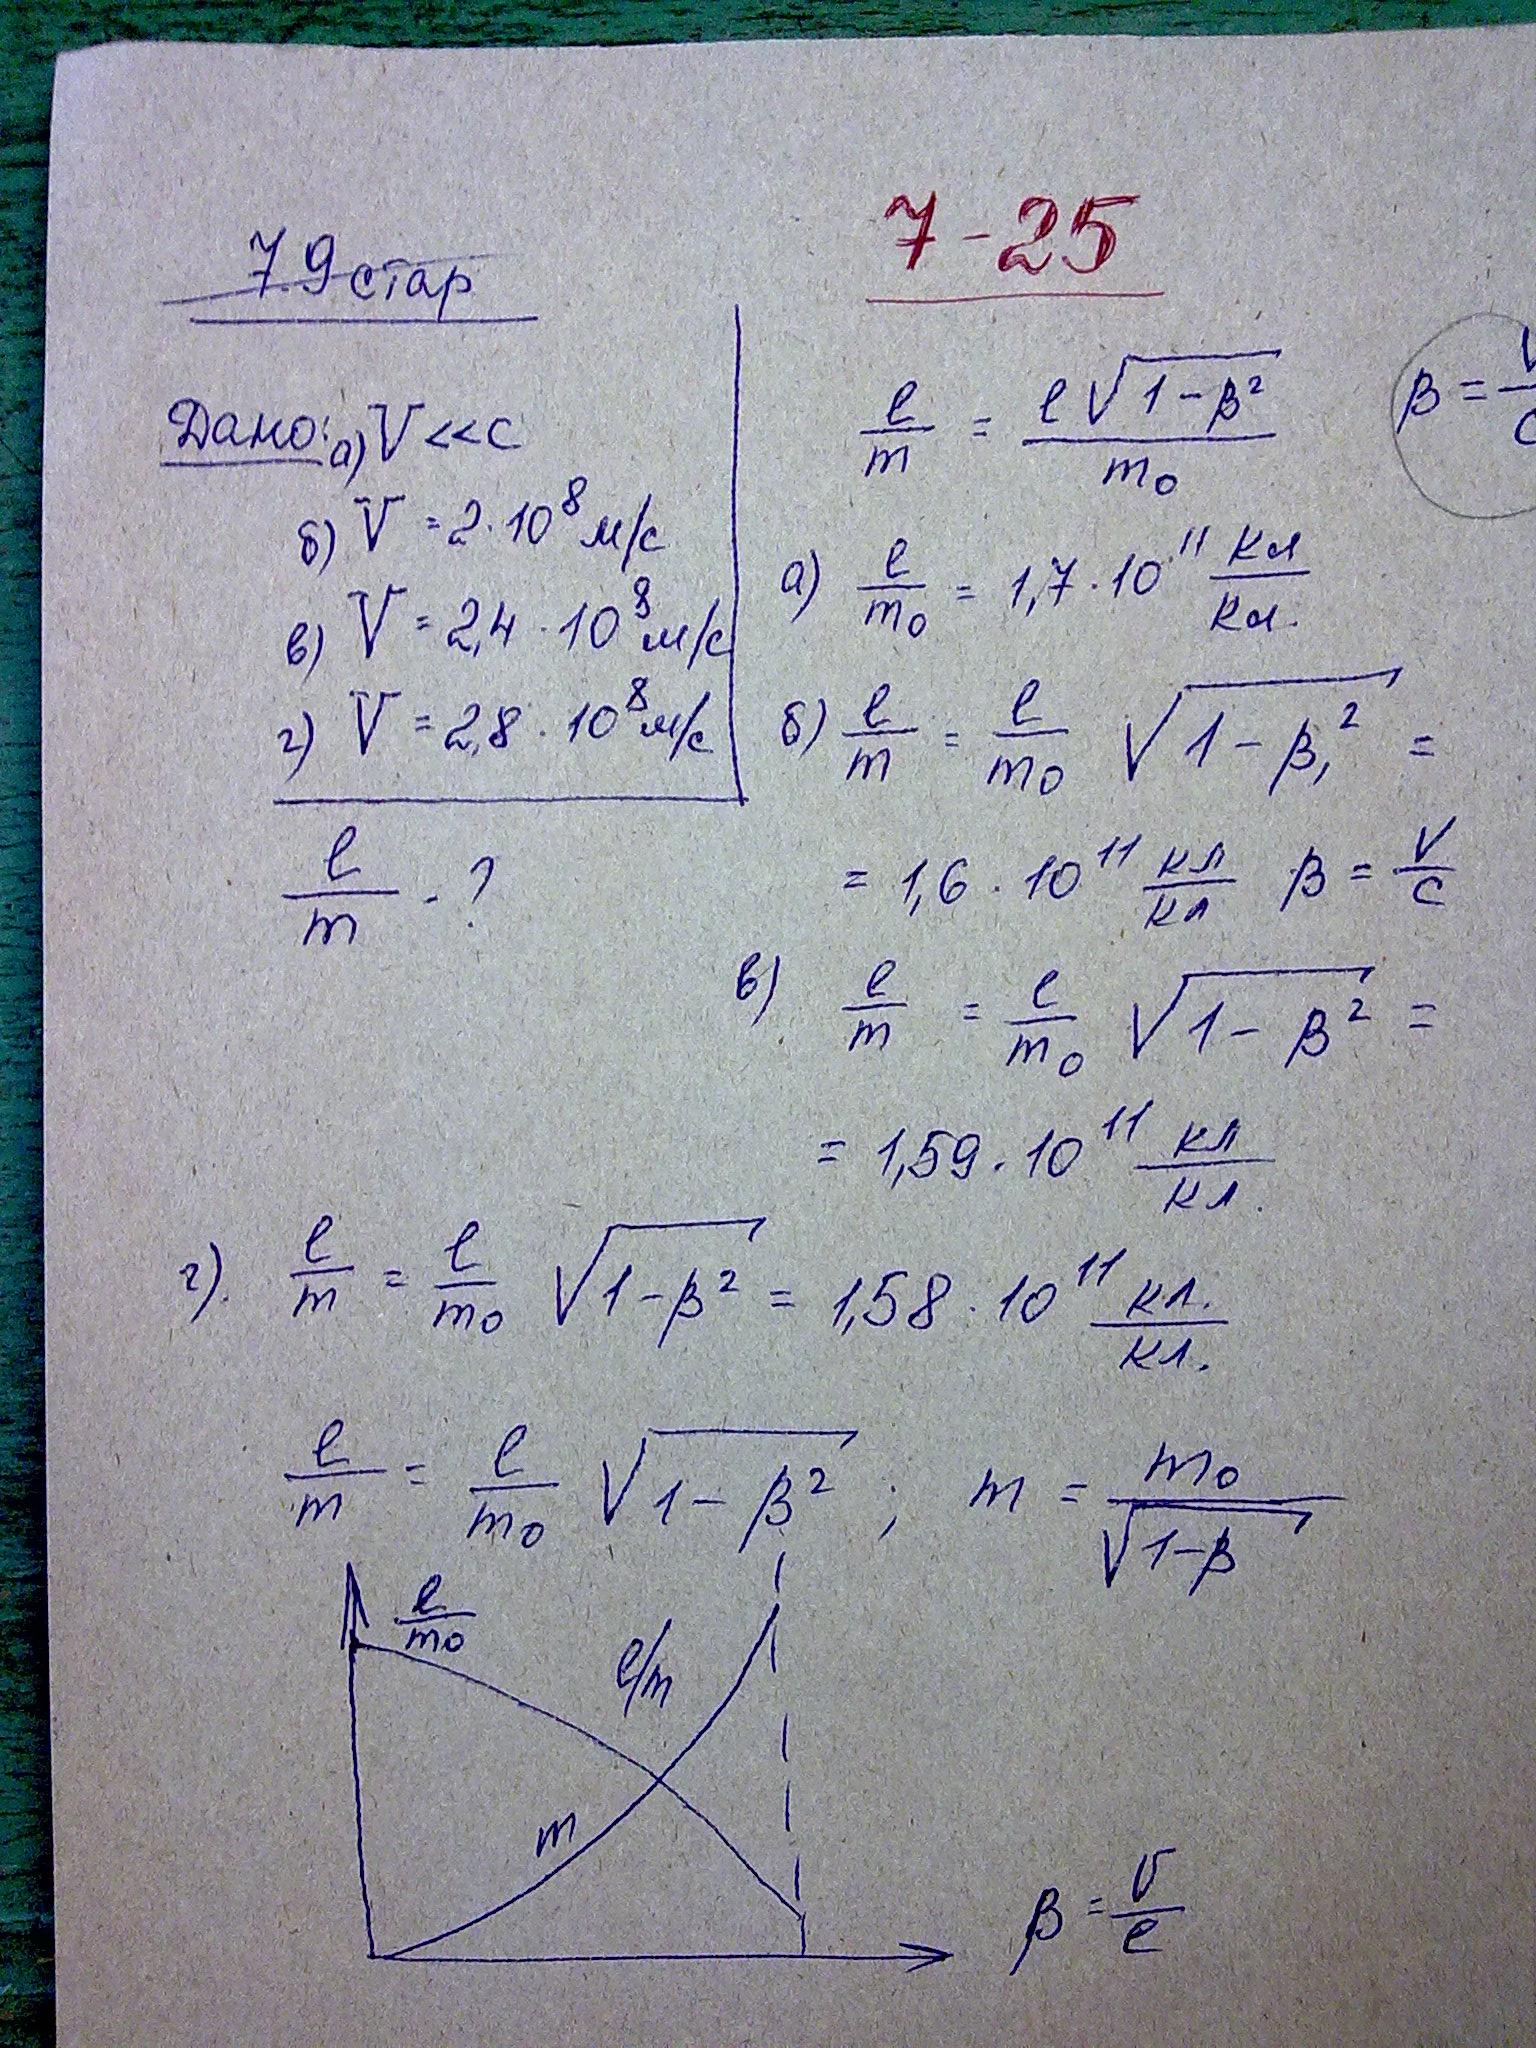 7.9 стар
7-25
Дано: а) V << c
б) V = 2·10⁸ м/с
в) V = 2,4·10⁸ м/с
г) V = 2,8·10⁸ м/с
e/m - ?
e/m = e√(1-β²)/m₀
β = V/c
а) e/m₀ = 1,7·10¹¹ кл/кл.
б) e/m = e/m₀ √(1-β₁²) =
= 1,6·10¹¹ кл/кл β = V/c
в) e/m = e/m₀ √(1-β²) =
= 1,59·10¹¹ кл/кл.
г). e/m = e/m₀ √(1-β²) = 1,58·10¹¹ кл./кл.
e/m = e/m₀ √(1-β²) ; m = m₀/√(1-β)
e/m₀
e/m
m
β = V/c